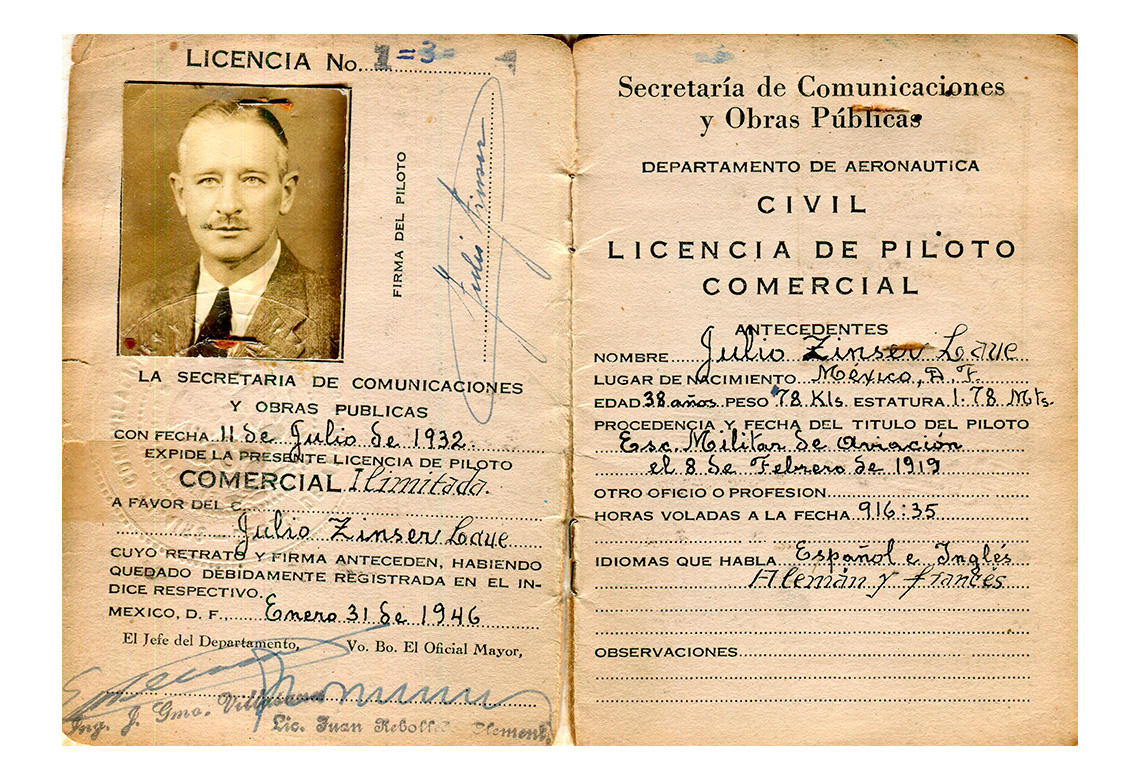 LICENCIA No. 1=3=
FIRMA DEL PILOTO
Julio Zinser
LA SECRETARIA DE COMUNICACIONES
Y OBRAS PUBLICAS
CON FECHA 11 de Julio de 1932.
EXPIDE LA PRESENTE LICENCIA DE PILOTO
COMERCIAL Ilimitada.
A FAVOR DEL C.
Julio Zinser Loque
CUYO RETRATO Y FIRMA ANTECEDEN, HABIENDO
QUEDADO DEBIDAMENTE REGISTRADA EN EL IN-
DICE RESPECTIVO.
MEXICO, D. F., Enero 31 de 1946
El Jefe del Departamento, Vo. Bo. El Oficial Mayor,
Ing. J. Gmo.
Lic. Juan
Secretaría de Comunicaciones
y Obras Públicas
DEPARTAMENTO DE AERONAUTICA
CIVIL
LICENCIA DE PILOTO
COMERCIAL
ANTECEDENTES
NOMBRE Julio Zinser
LUGAR DE NACIMIENTO México, D. F.
EDAD 38 años PESO 78 Kls. ESTATURA 1.78 Mts.
PROCEDENCIA Y FECHA DEL TITULO DEL PILOTO
Esc. Militar de Aviación
el 8 de Febrero de 1919
OTRO OFICIO O PROFESION
HORAS VOLADAS A LA FECHA 916:35
IDIOMAS QUE HABLA Español e Inglés
Alemán y francés
OBSERVACIONES